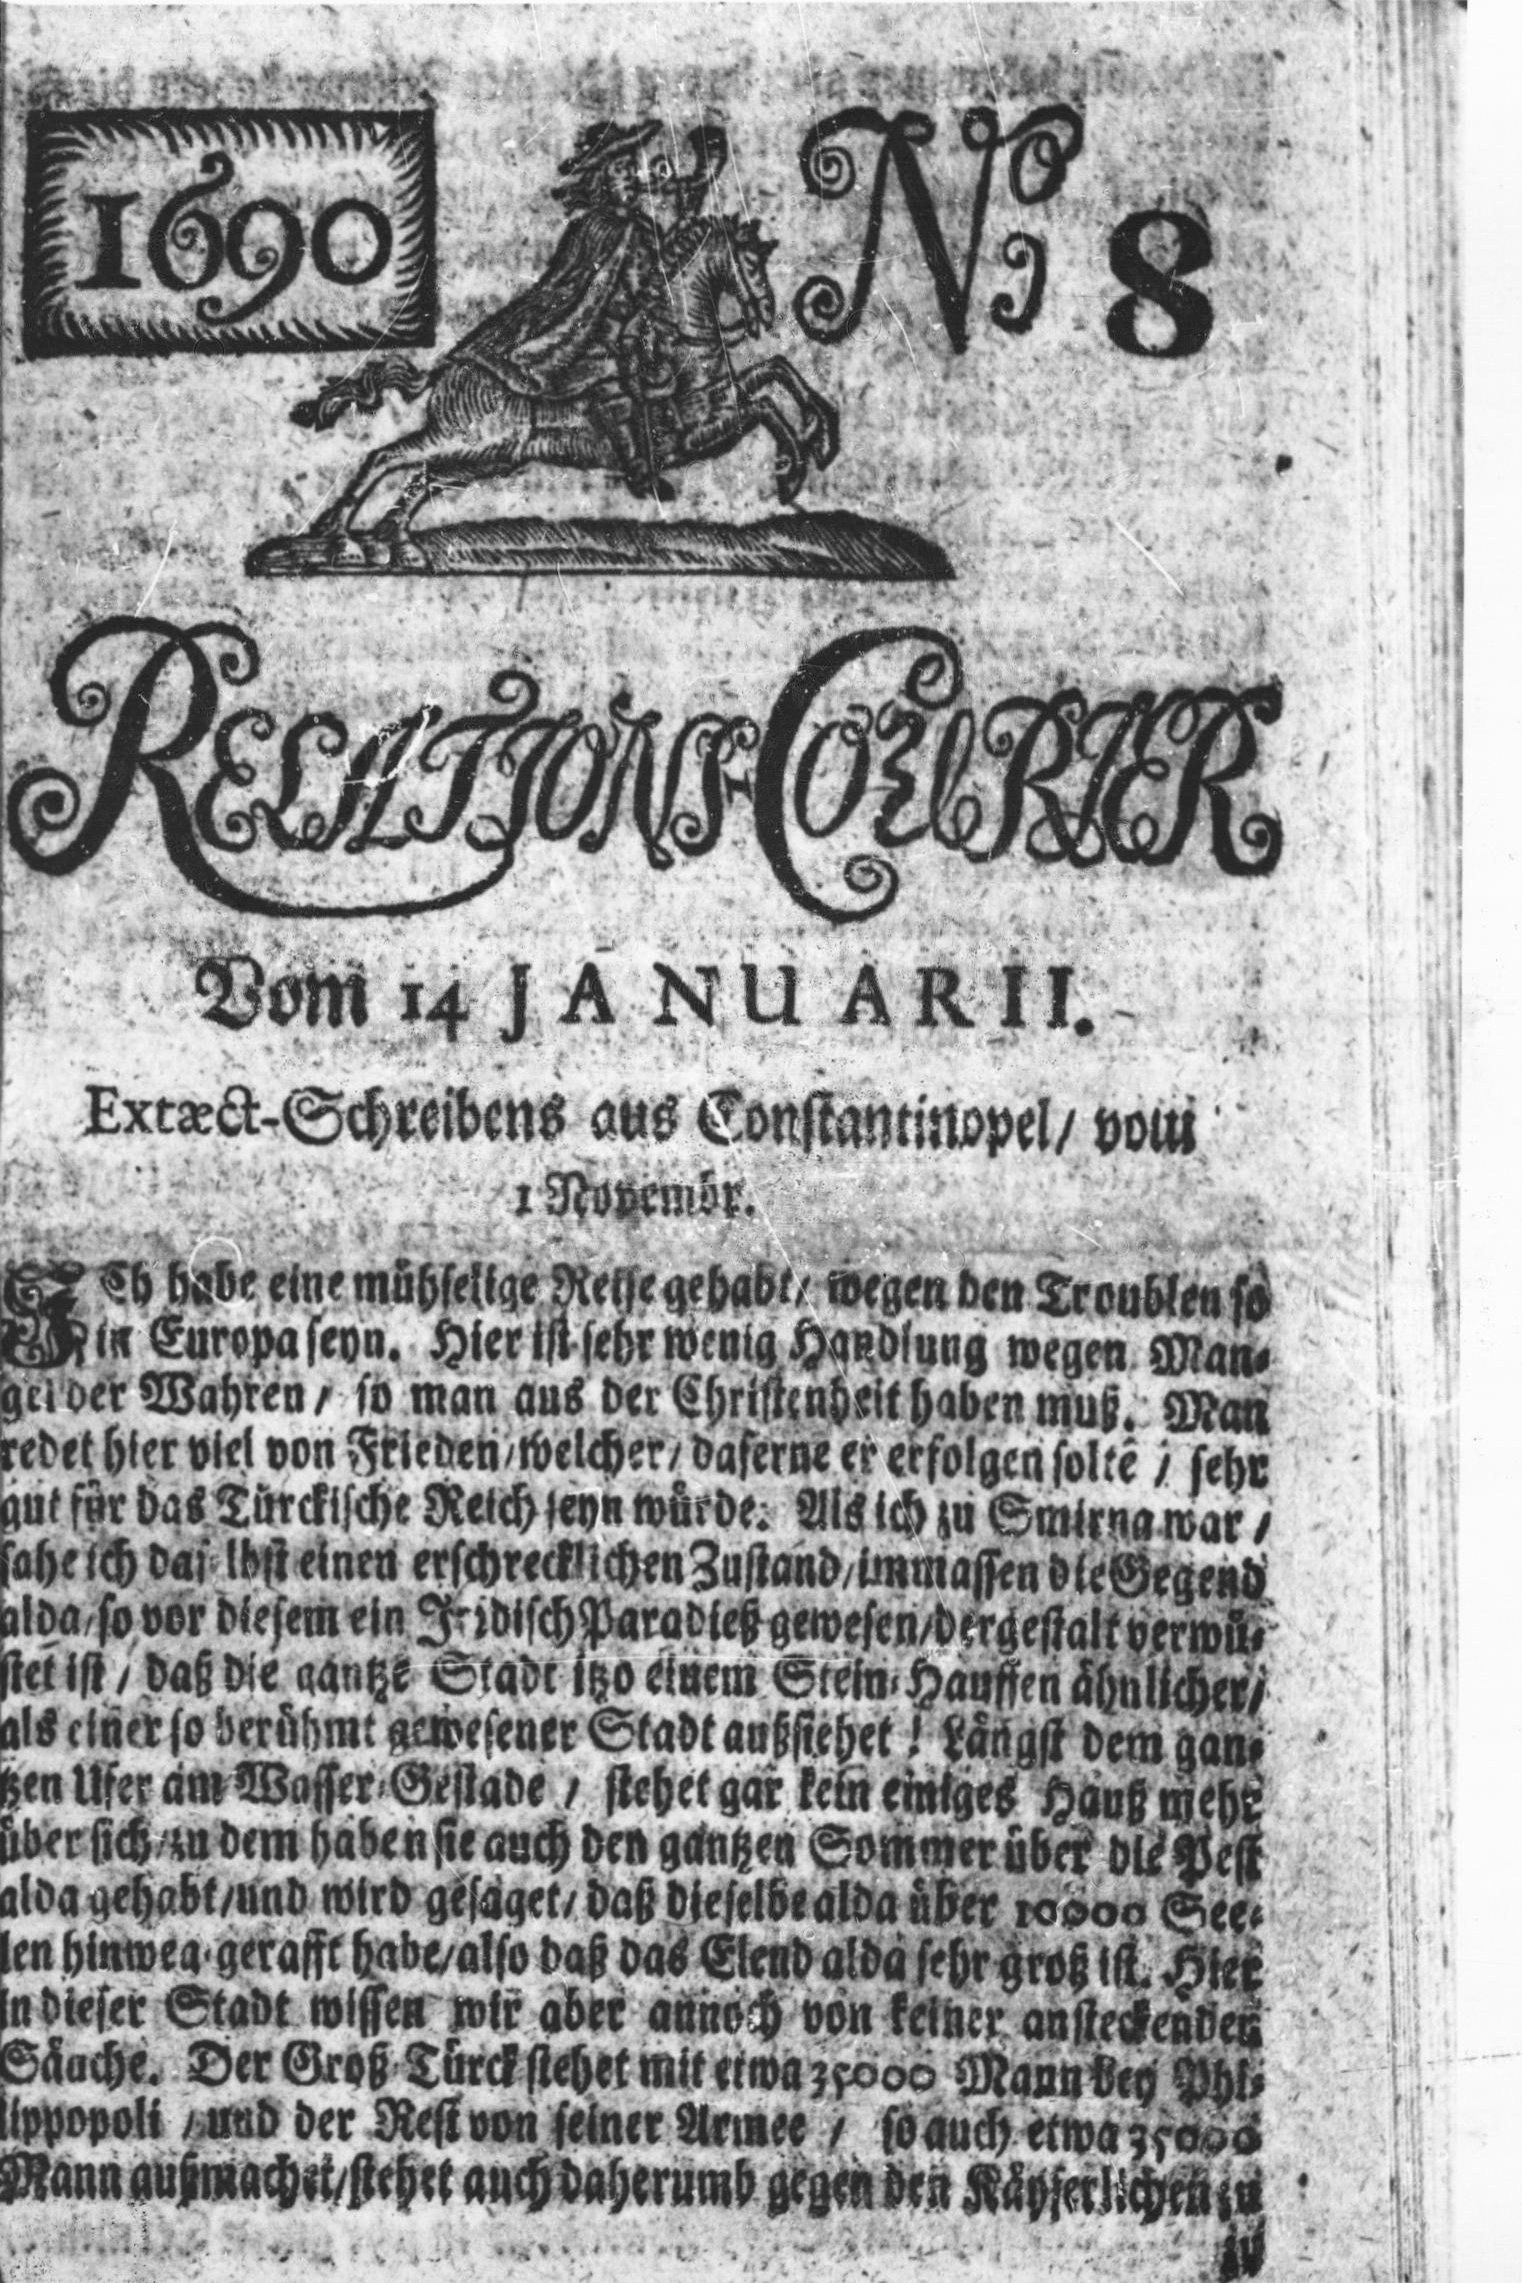 1690
No 8
RELATIONS-COURIER
Vom 14 JANUARII.
Extæct-Schreibens aus Constantinopel/ vom
1 Novembr.
ICh habe eine mühselige Reise gehabt/ wegen den Troublen so
in Europa seyn. Hier ist sehr wenig Handlung wegen Man-
gel der Wahren/ so man aus der Christenheit haben muß. Man
redet hier viel von Frieden/welcher/ daferne er erfolgen solte / sehr
gut für das Türckische Reich seyn würde. Als ich zu Smirna war /
sahe ich daselbst einen erschrecklichen Zustand/immassen die Gegend
alda/so vor diesem ein Irrdisch Paradieß gewesen/dergestalt verwü-
stet ist / daß die gantze Stadt itzo einem Stein-Hauffen ähnlicher/
als einer so berühmt gewesener Stadt außsiehet ! Längst dem gan-
tzen Ufer am Wasser-Gestade / stehet gar kein einiges Hauß mehr
über sich/zu dem haben sie auch den gantzen Sommer über die Pest
alda gehabt/und wird gesaget/ daß dieselbe alda über 10000 See-
len hinweg-gerafft habe/also daß das Elend alda sehr groß ist. Hier
in dieser Stadt wissen wir aber annoch von keiner ansteckender
Säuche. Der Groß-Türck stehet mit etwa 35000 Mann bey Phi-
lippopoli / und der Rest von seiner Armee / so auch etwa 35000
Mann außmachet/stehet auch daherumb gegen den Käyserlichen zu